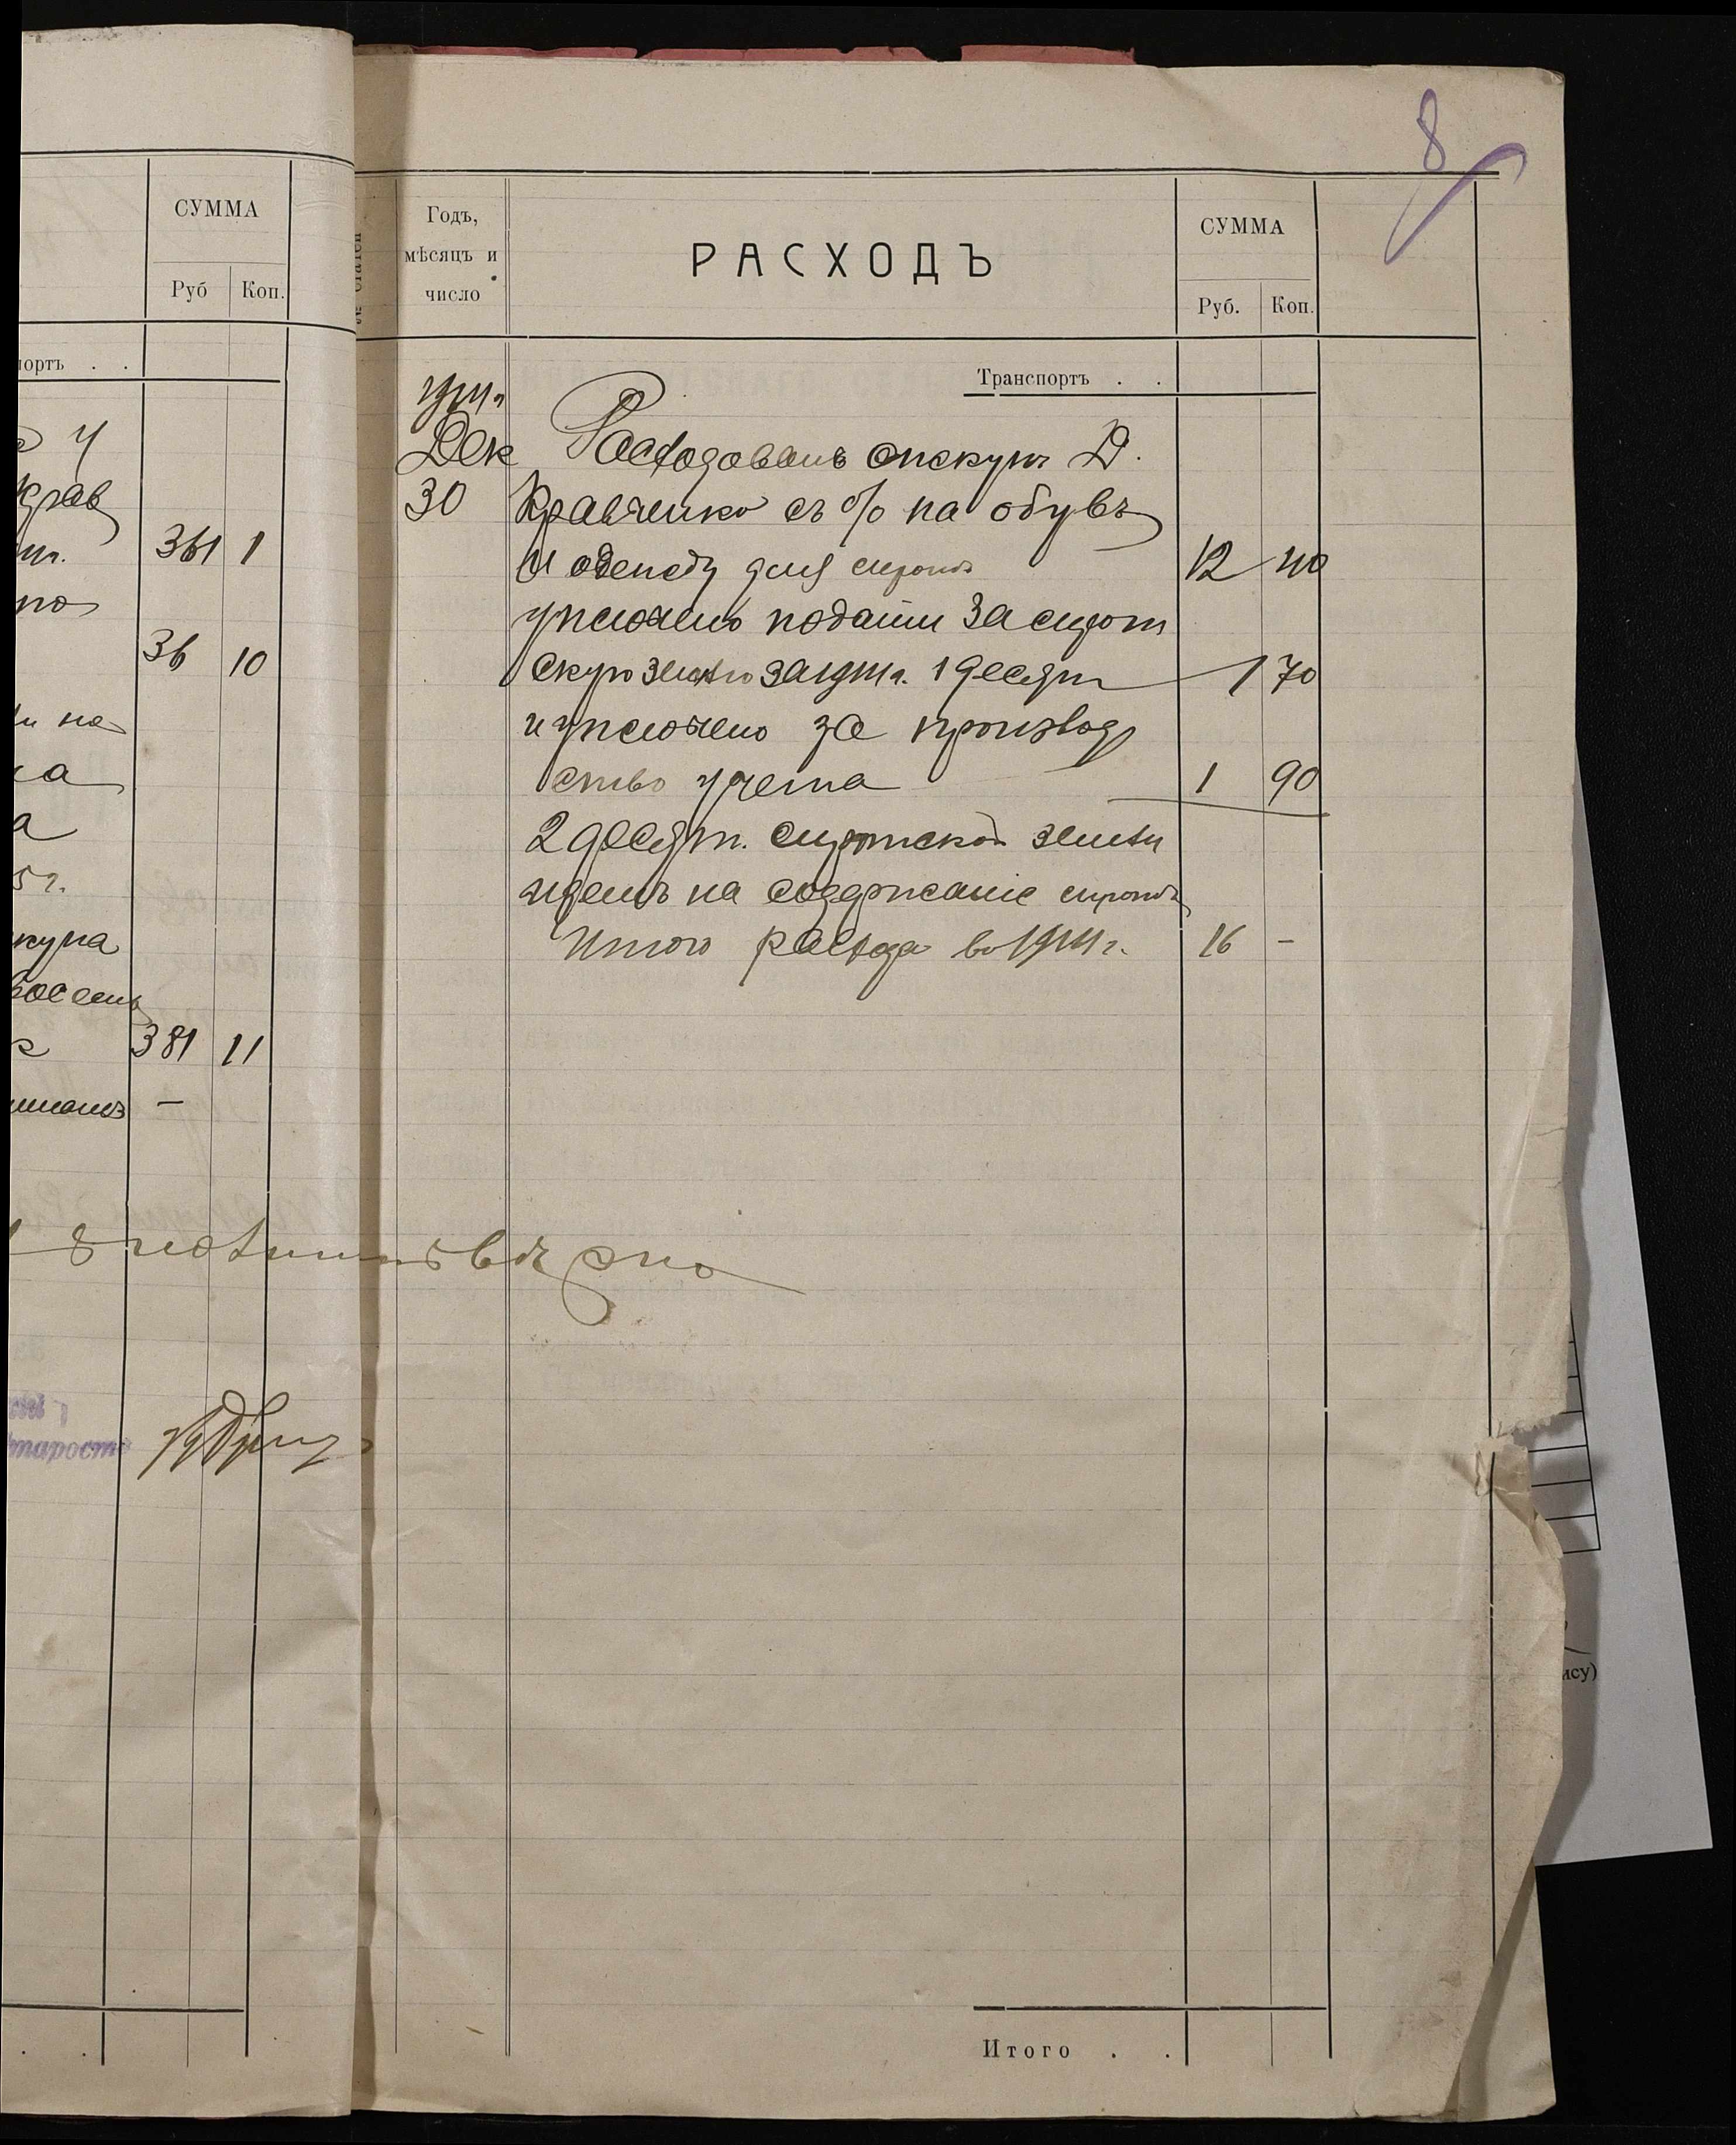 8
СУММА
Руб Коп.
портъ . .
крав
361 1
36 10
на
а
5 г.
куна
381 11
—
вѣрно
старост
№ статей
Годъ,
мѣсяцъ и
число
РАСХОДЪ
СУММА
Руб. Коп.
Транспортъ . .
1911 г
Дек Расходовалъ опекунъ Д.
30 Кравченко съ % на обувь
и одежду для сиротъ 12 40
уплочено подати за сирот
скую землю за 1911 г. 1 десят 1 70
и уплочено за производ
ство учета 1 90
2 десят. сиротской земли
идетъ на содержаніе сиротъ
Итого расхода во 1911 г. 16 -
Итого . .
ису)